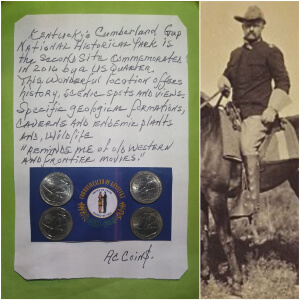 Kentucky's Cumberland Gap
National Historical Park is
the second site commemorated
in 2016 by a US Quarter.
This wonderful location offers
history, scenic spots and views.
Specific geological formations,
Caverns and endemic plants
and, Wildlife
"Reminds me of old western
and frontier movies."
AC Coin$.